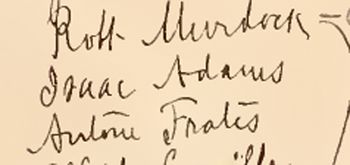 Robt. Murdock =
Isaac Adams
Antone Frates